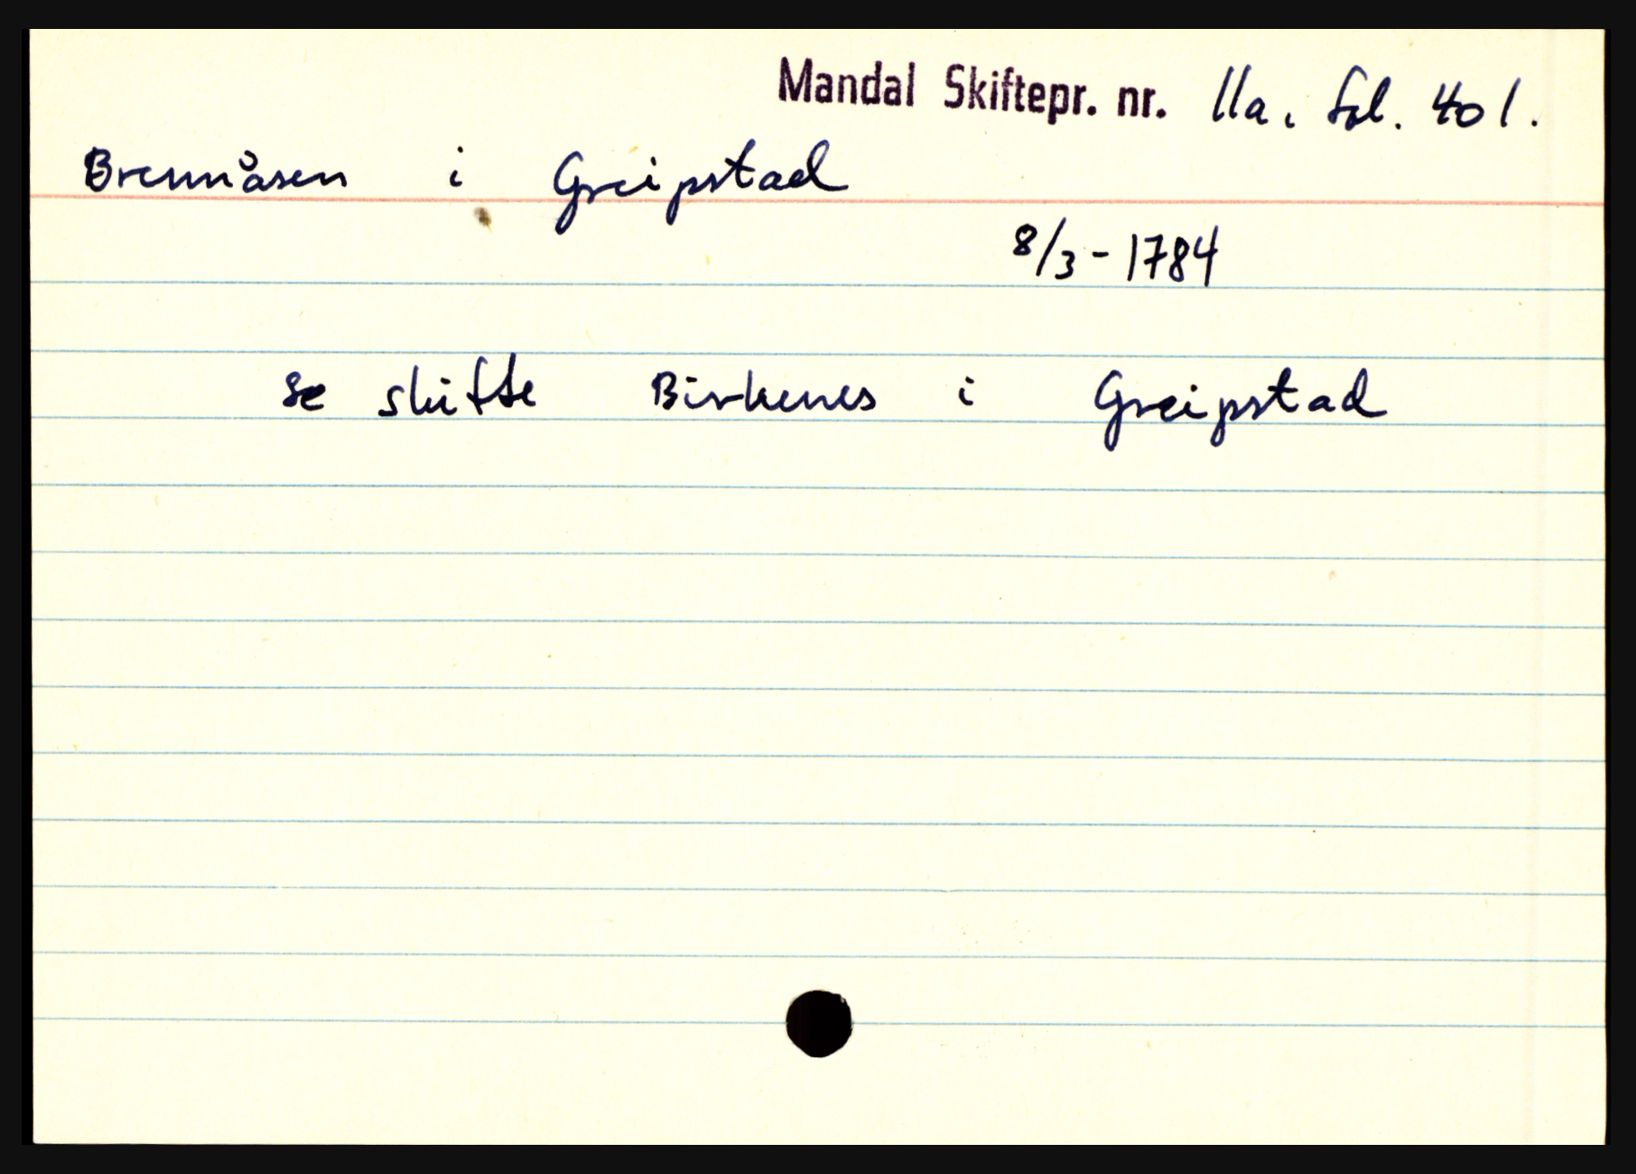 Mandal Skiftepr. nr. 11a, fol. 401.
Brennåsen i Greipstad
8/3 - 1784
Se skifte Birkenes i Greipstad